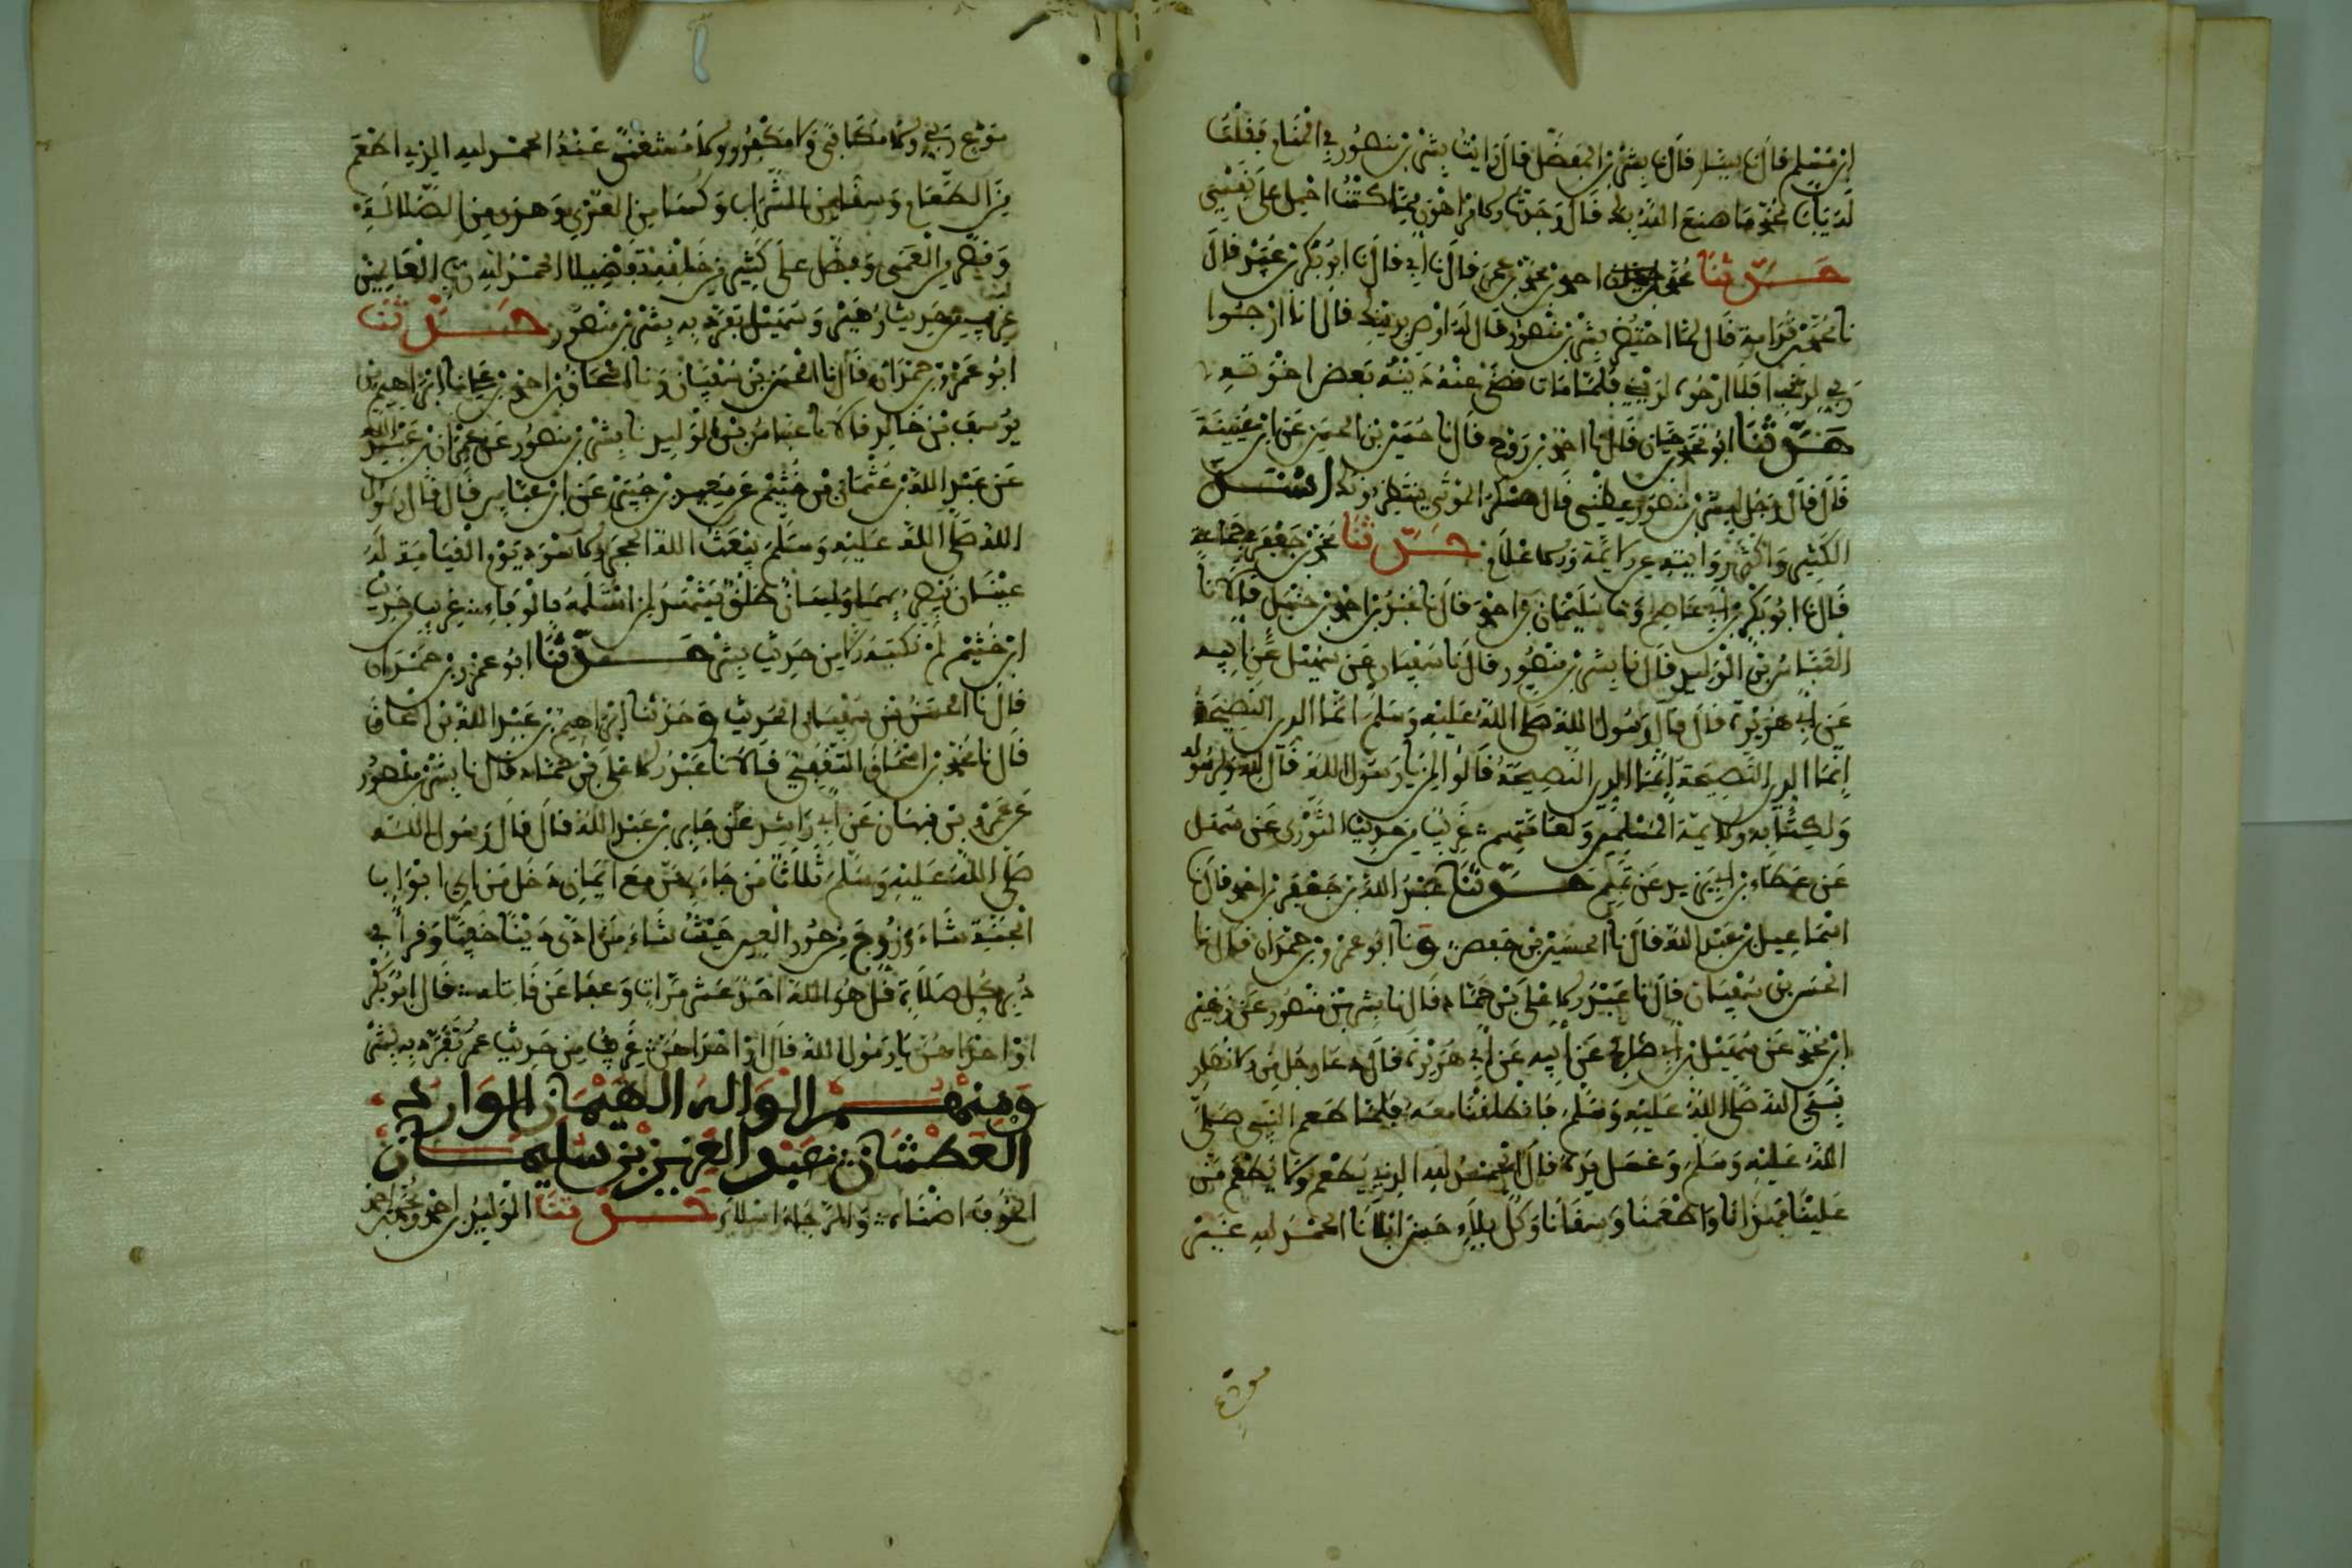 ابن مسلم قال نا سيار قال نا بشر بن المفضل قال رايت بشر بن منصور في المنام فقلت
له يابا محمد ما صنع الله بك قال وجدت الامر اهون مما كنت احمل على نفسي
حدثنا احمد بن محمد بن عمر قال نا ابي قال نا ابو بكر بن عبيد قال
نا محمد بن قدامة قال لما احتضر بشر بن منصور قال له اوص بدينك قال انا ارجوا
ربي لذنبي افلا ارجوه لديني فلما مات قضى عنه دينه بعض اخوانه
حدثنا ابو محمد بن حيان قال نا احمد بن روح قال نا حميد بن الحسن عن ابن عيينة
قال قال رجل لبشر بن منصور عظني قال عسكر الموتى ينتظرونك اسند
الكثير واكثر روايته عن الائمة والاعلام حدثنا محمد بن جعفر في جماعة
قال نا ابو بكر بن ابي عاصم ونا سليمان بن احمد قال نا عبد الله بن احمد بن حنبل قالا نا
العباس بن الوليد قال نا بشر بن منصور قال نا سفيان عن سهيل عن ابيه
عن ابي هريرة قال قال رسول الله صلى الله عليه وسلم انما الدين النصيحة
انما الدين النصيحة انما الدين النصيحة قالوا لمن يا رسول الله قال لله ولرسوله
ولكتابه ولائمة المسلمين ولعامتهم غريب من حديث الثوري عن سهيل
عن عطاء بن يزيد عن تميم حدثنا عبد الله بن جعفر بن احمد قال نا
اسماعيل بن عبد الله قال نا الحسين بن حفص ونا ابو عمرو بن حمدان قال نا
الحسن بن سفيان قال نا عبد الاعلى بن حماد قال نا بشر بن منصور عن زهير
ابن محمد عن سهيل بن ابي صالح عن ابيه عن ابي هريرة قال دعا رجل من الانصار
نبي الله صلى الله عليه وسلم فانطلقنا معه فلما طعم النبي صلى
الله عليه وسلم وغسل يده قال الحمد لله الذي يطعم ولا يطعم من
علينا فهدانا واطعمنا وسقانا وكل بلاء حسن ابلانا الحمد لله غير
مودع
مودع ربي ولا مكافى ولا مكفور ولا مستغنى عنه الحمد لله الذي اطعم
من الطعام وسقى من الشراب وكسا من العري وهدى من الضلالة
وبصر من العمى وفضل على كثير من خلقه تفضيلا الحمد لله رب العالمين
غريب من حديث زهير وسهيل تفرد به بشر بن منصور حدثنا
ابو عمرو بن حمدان قال نا الحسن بن سفيان ونا اسحاق بن احمد بن علي نا ابراهيم بن
يوسف بن خالد قالا نا عباس بن الوليد نا بشر بن منصور عن عمران بن عبيد الله
عن عبد الله بن عثمان بن خثيم عن سعيد بن جبير عن ابن عباس قال قال رسول
الله صلى الله عليه وسلم يبعث الله الحجر الاسود يوم القيامة له
عينان يبصر بهما ولسان طلق يشهد لمن استلمه بالوفاء غريب من حديث
ابن خثيم لم نكتبه الا من حديث بشر حدثنا ابو عمرو بن حمدان
قال نا الحسن بن سفيان الحديث وحدثنا ابراهيم بن عبد الله بن اسحاق
قال نا محمد بن اسحاق الثقفي قالا نا عبد الاعلى بن حماد قال نا بشر بن منصور
عن عمرو بن نبهان عن ابي راشد عن جابر بن عبد الله قال قال رسول الله
صلى الله عليه وسلم ثلاث من جاء بهن مع ايمان دخل من اي ابواب
الجنة شاء وزوج من حور العين حيث شاء من ادى دينا خفيا وقرا في
دبر كل صلاة قل هو الله احد عشر مرات وعفا عن قاتله قال ابو بكر
او احداهن يا رسول الله قال او احداهن غريب من حديث عمر تفرد به بشر
ومنهم الواله الهيمان الوارد
العطشان عبد العزيز بن سليمان
الخوف اضناه والرجاء اسلاه حدثنا الوليد بن احمد ومحمد بن احمد